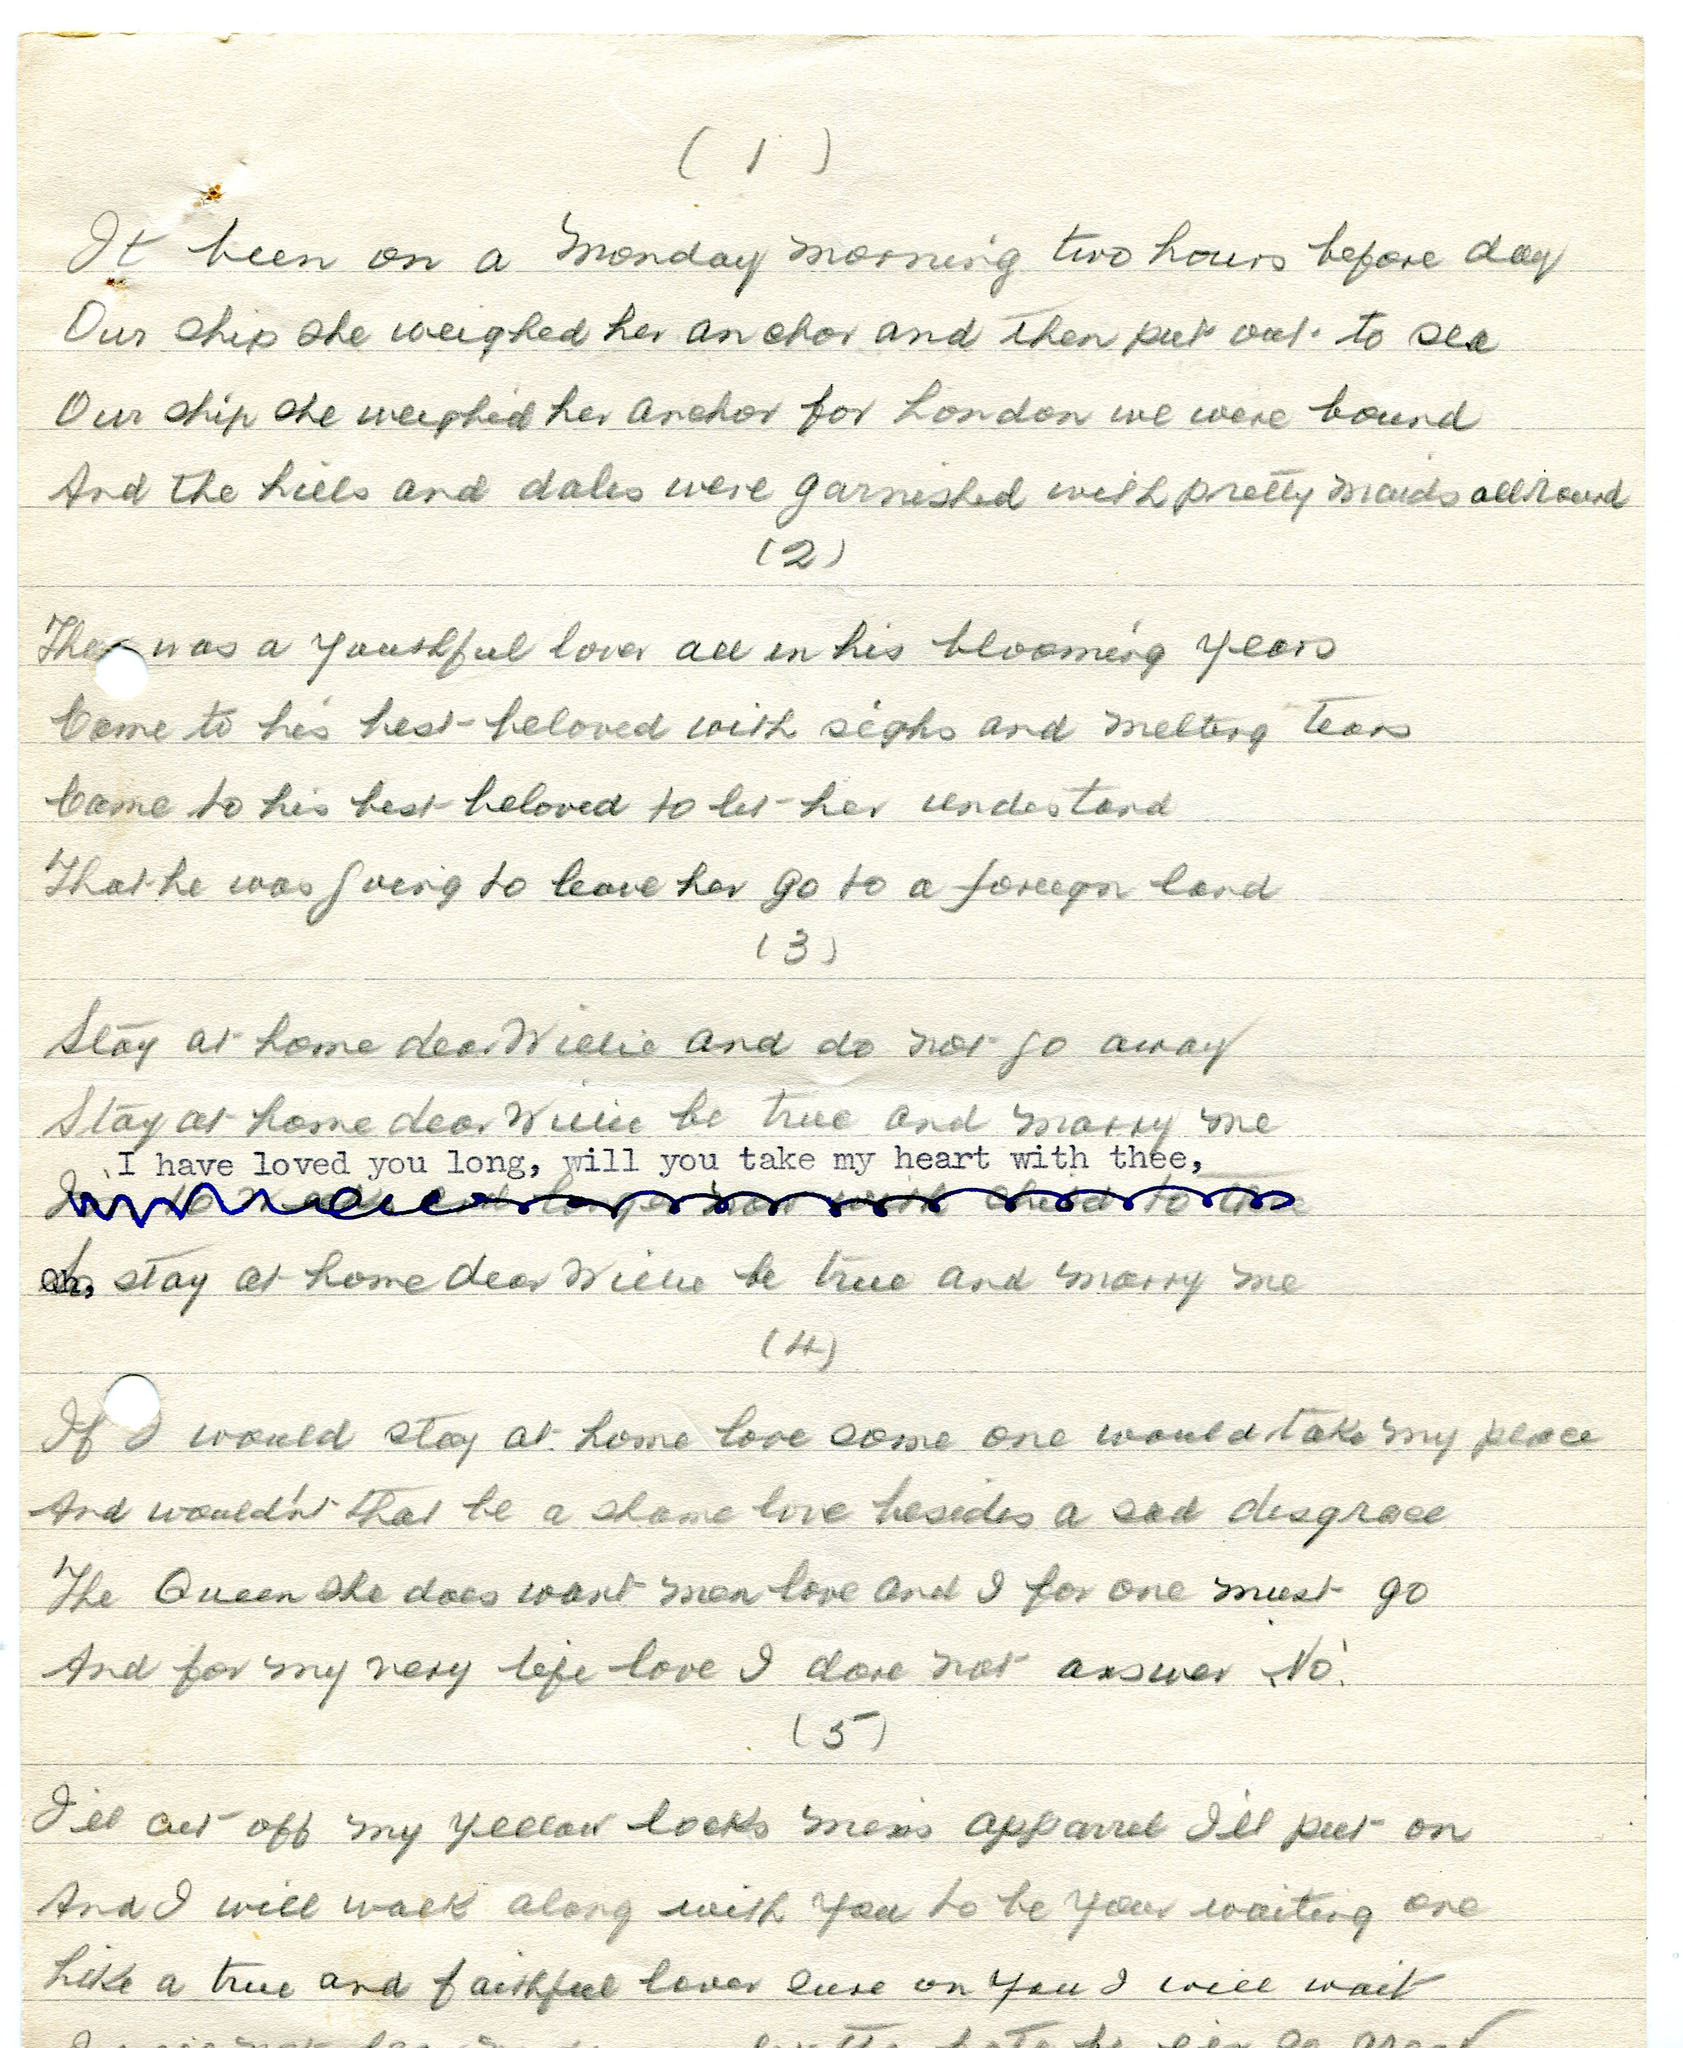 (1)
It been on a Monday morning two hours before day
Our ship she weighed her anchor and then put out to sea
Our ship she weighed her anchor for London we were bound
And the hills and dales were garnished with pretty maids all round
(2)
was a youthful lover all in his blooming years
Came to his best beloved with sighs and melting tears
Came to his best beloved to let her undestand
That he was going to leave her go to a foreign land
(3)
Stay at home dear Willie and do not go away
Stay at home dear Willie be true and marry me
I have loved you long, will you take my heart with thee,
longer now with child to thee
Oh, stay at home dear Willie be true and marry me
(4)
If I would stay at home love some one would take my place
And would'nt that be a shame love besides a sad disgrace
The Queen she does want men love and I for one must go
And for my very life love I dare not answer No.
(5)
I'll cut off my yellow locks men's apparrel I'll put on
And I will walk along with you to be your waiting one
Like a true and faithful lover sure on you I will wait